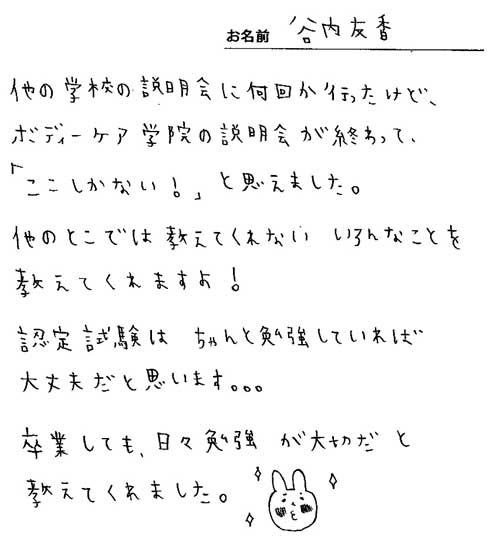 お名前 谷内友香
他の学校の説明会に何回か行ったけど、
ボディーケア学院の説明会が終わって、
「ここしかない！」と思えました。
他のとこでは教えてくれない いろんなことを
教えてくれますよ！
認定試験は ちゃんと勉強していれば
大丈夫だと思います。。。
卒業しても、日々勉強が大切だと
教えてくれました。